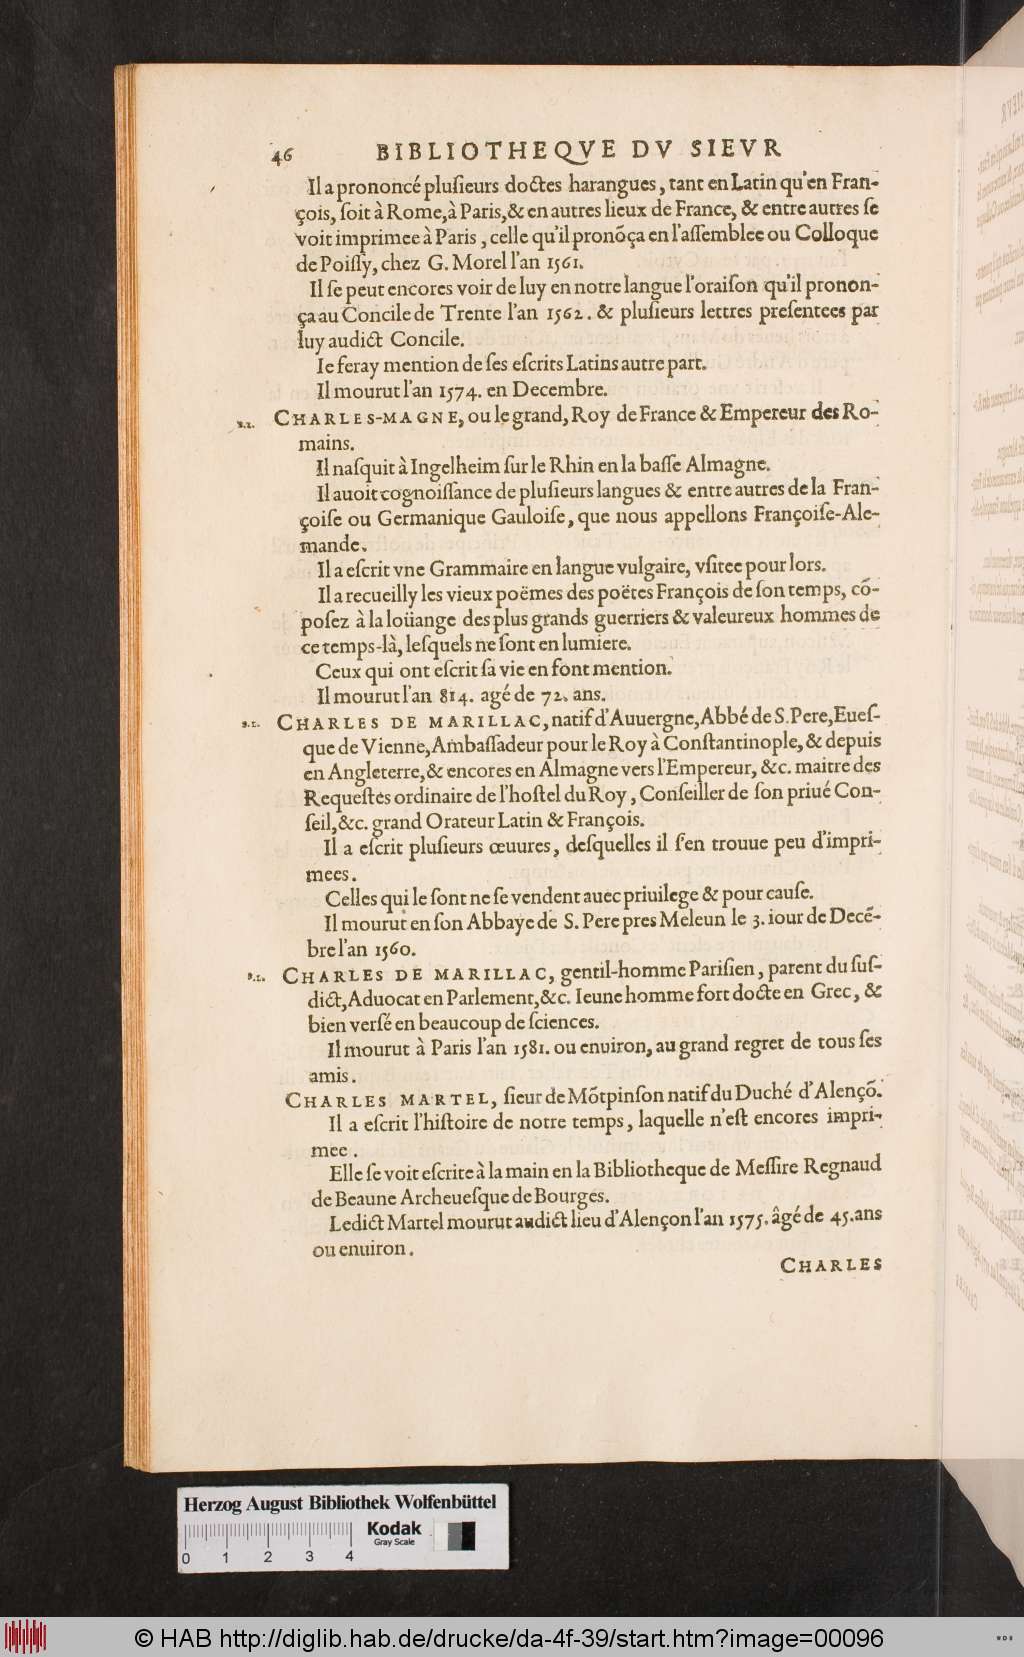 46 BIBLIOTHEQVE DV SIEVR
Il a prononcé pluſieurs doctes harangues, tant en Latin qu'en Fran-
çois, ſoit à Rome, à Paris, & en autres lieux de France, & entre autres ſe
voit imprimee à Paris, celle qu'il pronõça en l'aſſemblee ou Colloque
de Poiſſy, chez G. Morel l'an 1561.
Il ſe peut encores voir de luy en notre langue l'oraiſon qu'il pronon-
ça au Concile de Trente l'an 1562. & pluſieurs lettres preſentees par
luy audict Concile.
Ie feray mention de ſes eſcrits Latins autre part.
Il mourut l'an 1574. en Decembre.
CHARLES-MAGNE, ou le grand, Roy de France & Empereur des Ro-
mains.
Il naſquit à Ingelheim ſur le Rhin en la baſſe Almagne.
Il auoit cognoiſſance de pluſieurs langues & entre autres de la Fran-
çoiſe ou Germanique Gauloiſe, que nous appellons Françoiſe-Ale-
mande.
Il a eſcrit vne Grammaire en langue vulgaire, vſitee pour lors.
Il a recueilly les vieux poëmes des poëtes François de ſon temps, cõ-
poſez à la loüange des plus grands guerriers & valeureux hommes de
ce temps-là, leſquels ne ſont en lumiere.
Ceux qui ont eſcrit ſa vie en font mention.
Il mourut l'an 814. agé de 72. ans.
CHARLES DE MARILLAC, natif d'Auuergne, Abbé de S. Pere, Eueſ-
que de Vienne, Ambaſſadeur pour le Roy à Conſtantinople, & depuis
en Angleterre, & encores en Almagne vers l'Empereur, &c. maitre des
Requeſtes ordinaire de l'hoſtel du Roy, Conſeiller de ſon priué Con-
ſeil, &c. grand Orateur Latin & François.
Il a eſcrit pluſieurs œuures, deſquelles il ſ'en trouue peu d'impri-
mees.
Celles qui le ſont ne ſe vendent auec priuilege & pour cauſe.
Il mourut en ſon Abbaye de S. Pere pres Meleun le 3. iour de Decẽ-
bre l'an 1560.
CHARLES DE MARILLAC, gentil-homme Pariſien, parent du ſuſ-
dict, Aduocat en Parlement, &c. Ieune homme fort docte en Grec, &
bien verſé en beaucoup de ſciences.
Il mourut à Paris l'an 1581. ou enuiron, au grand regret de tous ſes
amis.
CHARLES MARTEL, ſieur de Mõtpinſon natif du Duché d'Alençõ.
Il a eſcrit l'hiſtoire de notre temps, laquelle n'eſt encores impri-
mee.
Elle ſe voit eſcrite à la main en la Bibliotheque de Meſſire Regnaud
de Beaune Archeueſque de Bourges.
Ledict Martel mourut audict lieu d'Alençon l'an 1575. âgé de 45. ans
ou enuiron.
CHARLES
Herzog August Bibliothek Wolfenbüttel
Kodak
Gray Scale
0 1 2 3 4
© HAB http://diglib.hab.de/drucke/da-4f-39/start.htm?image=00096